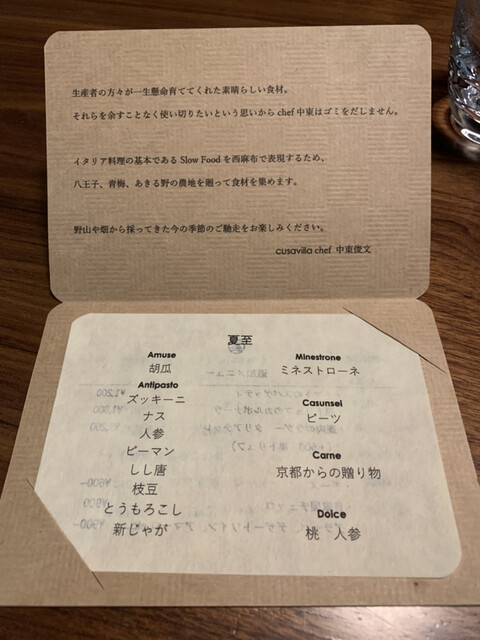 生産者の方々が一生懸命育ててくれた素晴らしい食材。
それらを余すことなく使い切りたいという思いから chef 中東はゴミをだしません。
イタリア料理の基本である Slow Food を西麻布で表現するため、
八王子、青梅、あきる野の農地を廻って食材を集めます。
野山や畑から採ってきた今の季節のご馳走をお楽しみください。
cusavilla chef 中東俊文
夏至
Amuse
胡瓜
Antipasto
ズッキーニ
ナス
人参
ピーマン
しし唐
枝豆
とうもろこし
新じゃが
Minestrone
ミネストローネ
Casunsei
ビーツ
Carne
京都からの贈り物
Dolce
桃 人参